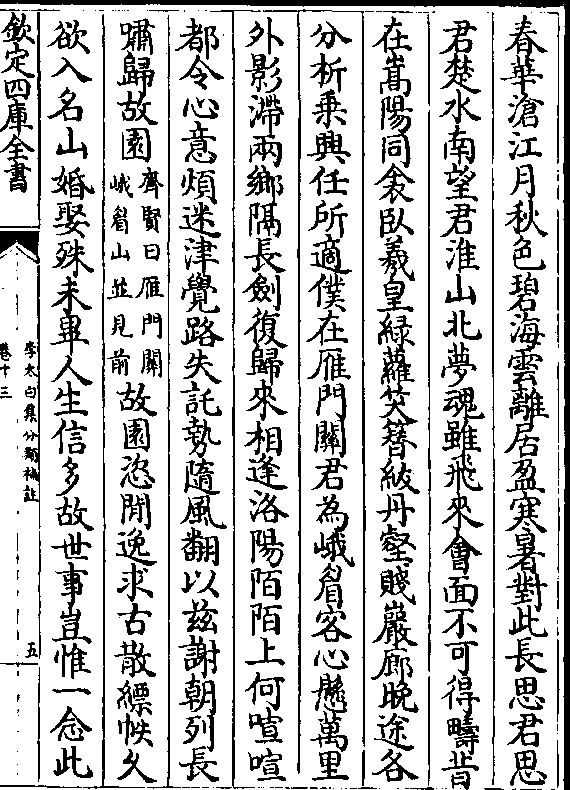 春華滄江月秋色碧海雲離居盈寒暑對此長思君思
君楚水南望君淮山北夢魂雖飛來會面不可得疇昔
在嵩陽同衾臥羲皇綠蘿笑簪紱丹壑賤巖廊晚途各
分析乗興任所適僕在雁門闗君為峨眉客心懸萬里
外影滯兩鄉隔長劍復歸來相逢洛陽陌陌上何喧喧
都令心意煩迷津覺路失託勢隨風翻以兹謝朝列長
嘯歸故園齊賢曰雁門關峨眉山並見前故園恣閒逸求古散縹帙久
欲入名山婚娶殊未畢人生信多故世事豈惟一念此
欽定四庫全書
李太白集分類補註
卷十三
五